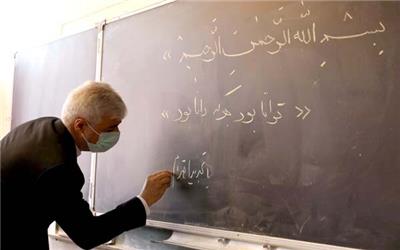 بسم اللّه الرّحمن الرّحیم »
« توانا بود هر که دانا بود »